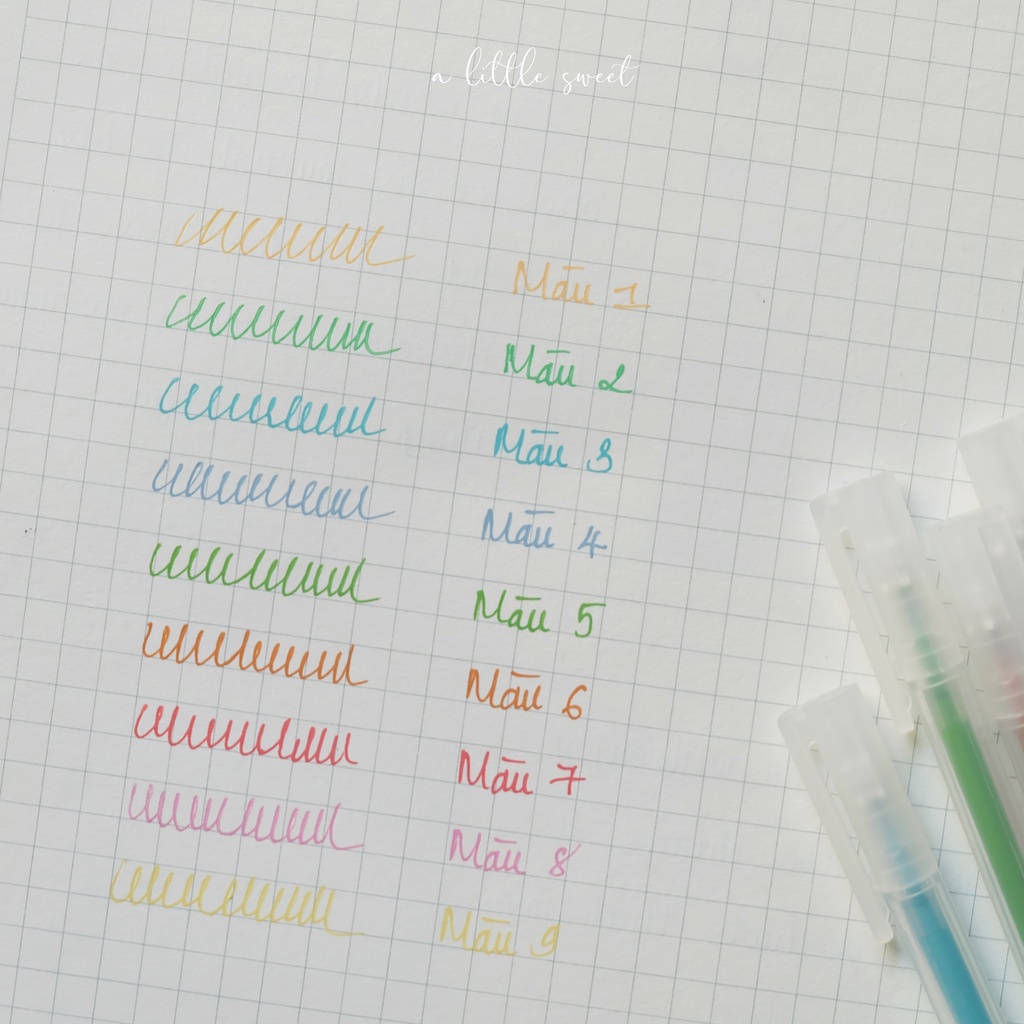 a little sweet
Mẫu 1
Mẫu 2
Mẫu 3
Mẫu 4
Mẫu 5
Mẫu 6
Mẫu 7
Mẫu 8
Mẫu 9